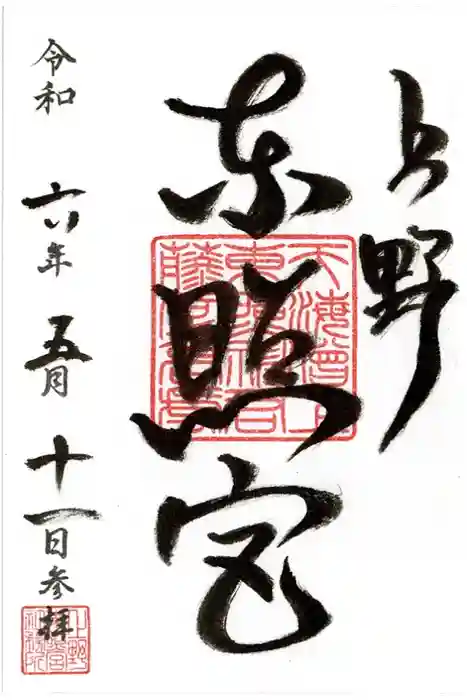 上野
東照宮
令和六年五月十一日参拝